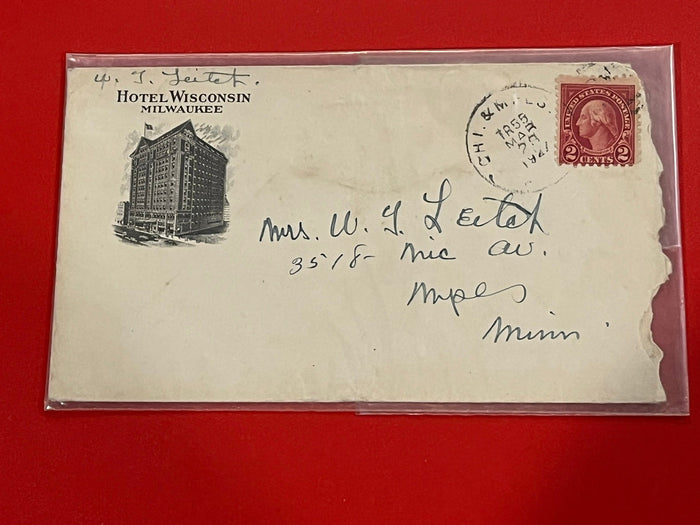 W. J. Leitch.
HOTEL WISCONSIN
MILWAUKEE
CHI. & MPLS.
TR 55
MAR
1927
UNITED STATES POSTAGE
2 CENTS 2
Mrs. W. J. Leitch
3518- Nic Av.
Mpls
Minn